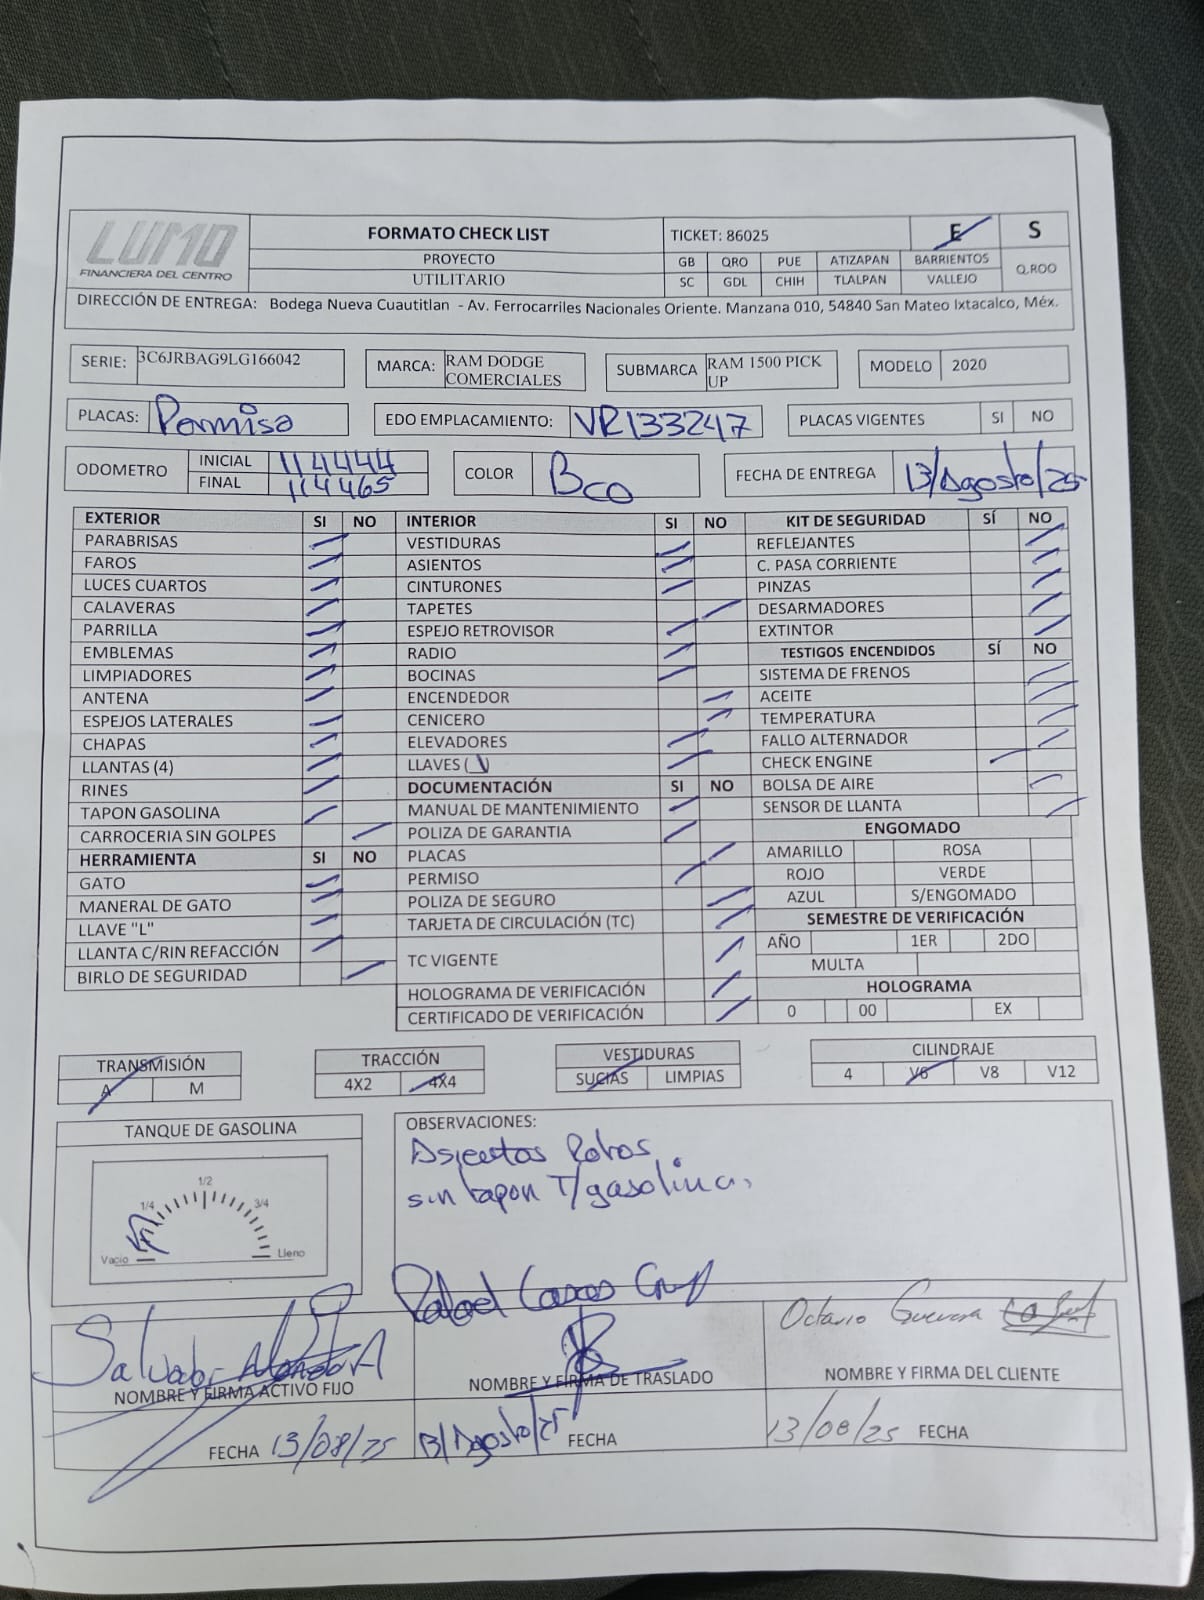 LUMO
FINANCIERA DEL CENTRO
FORMATO CHECK LIST
TICKET: 86025
E
S
PROYECTO
GB QRO PUE ATIZAPAN BARRIENTOS
Q.ROO
UTILITARIO
SC GDL CHIH TLALPAN VALLEJO
DIRECCIÓN DE ENTREGA: Bodega Nueva Cuautitlan - Av. Ferrocarriles Nacionales Oriente. Manzana 010, 54840 San Mateo Ixtacalco, Méx.
SERIE: 3C6JRBAG9LG166042
MARCA: RAM DODGE COMERCIALES
SUBMARCA RAM 1500 PICK UP
MODELO 2020
PLACAS: Permiso
EDO EMPLACAMIENTO: VR133247
PLACAS VIGENTES SI NO
ODOMETRO INICIAL 114444
FINAL 114465
COLOR Bco
FECHA DE ENTREGA 13/Agosto/25
EXTERIOR SI NO
PARABRISAS
FAROS
LUCES CUARTOS
CALAVERAS
PARRILLA
EMBLEMAS
LIMPIADORES
ANTENA
ESPEJOS LATERALES
CHAPAS
LLANTAS (4)
RINES
TAPON GASOLINA
CARROCERIA SIN GOLPES
HERRAMIENTA SI NO
GATO
MANERAL DE GATO
LLAVE "L"
LLANTA C/RIN REFACCIÓN
BIRLO DE SEGURIDAD
INTERIOR SI NO
VESTIDURAS
ASIENTOS
CINTURONES
TAPETES
ESPEJO RETROVISOR
RADIO
BOCINAS
ENCENDEDOR
CENICERO
ELEVADORES
LLAVES (1)
DOCUMENTACIÓN SI NO
MANUAL DE MANTENIMIENTO
POLIZA DE GARANTIA
PLACAS
PERMISO
POLIZA DE SEGURO
TARJETA DE CIRCULACIÓN (TC)
TC VIGENTE
HOLOGRAMA DE VERIFICACIÓN
CERTIFICADO DE VERIFICACIÓN
KIT DE SEGURIDAD SÍ NO
REFLEJANTES
C. PASA CORRIENTE
PINZAS
DESARMADORES
EXTINTOR
TESTIGOS ENCENDIDOS SÍ NO
SISTEMA DE FRENOS
ACEITE
TEMPERATURA
FALLO ALTERNADOR
CHECK ENGINE
BOLSA DE AIRE
SENSOR DE LLANTA
ENGOMADO
AMARILLO ROSA
ROJO VERDE
AZUL S/ENGOMADO
SEMESTRE DE VERIFICACIÓN
AÑO 1ER 2DO
MULTA
HOLOGRAMA
0 00 EX
TRANSMISIÓN
A M
TRACCIÓN
4X2 4X4
VESTIDURAS
SUCIAS LIMPIAS
CILINDRAJE
4 V6 V8 V12
TANQUE DE GASOLINA
1/2
1/4 3/4
Vacio Lleno
OBSERVACIONES:
Asientos Rotos
sin tapon T/gasolina.
Rafael Casas
Salvador
Octavio Guevara
NOMBRE Y FIRMA ACTIVO FIJO
NOMBRE Y FIRMA DE TRASLADO
NOMBRE Y FIRMA DEL CLIENTE
FECHA 13/08/25
13/Agosto/25 FECHA
13/08/25 FECHA